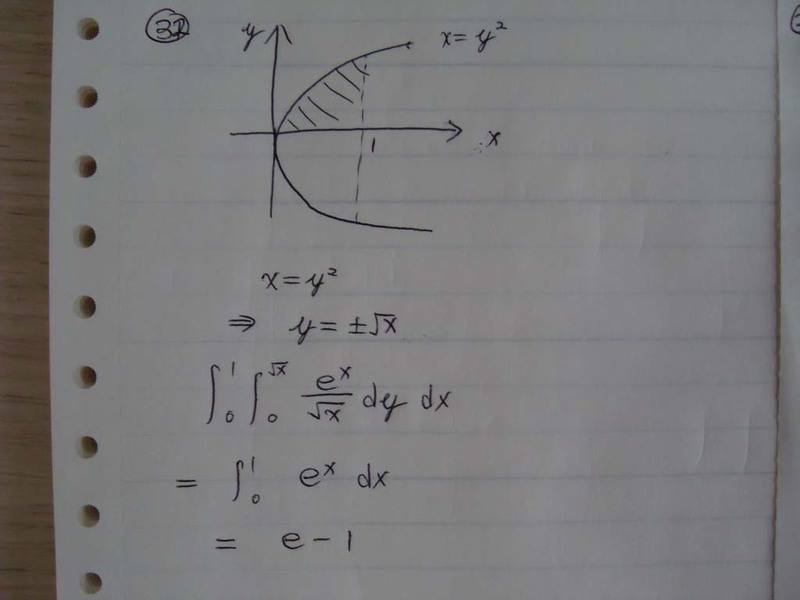 32
y
x = y²
1
x
x = y²
⇒ y = ±√x
∫₀¹ ∫₀^√x e^x/√x dy dx
= ∫₀¹ e^x dx
= e − 1